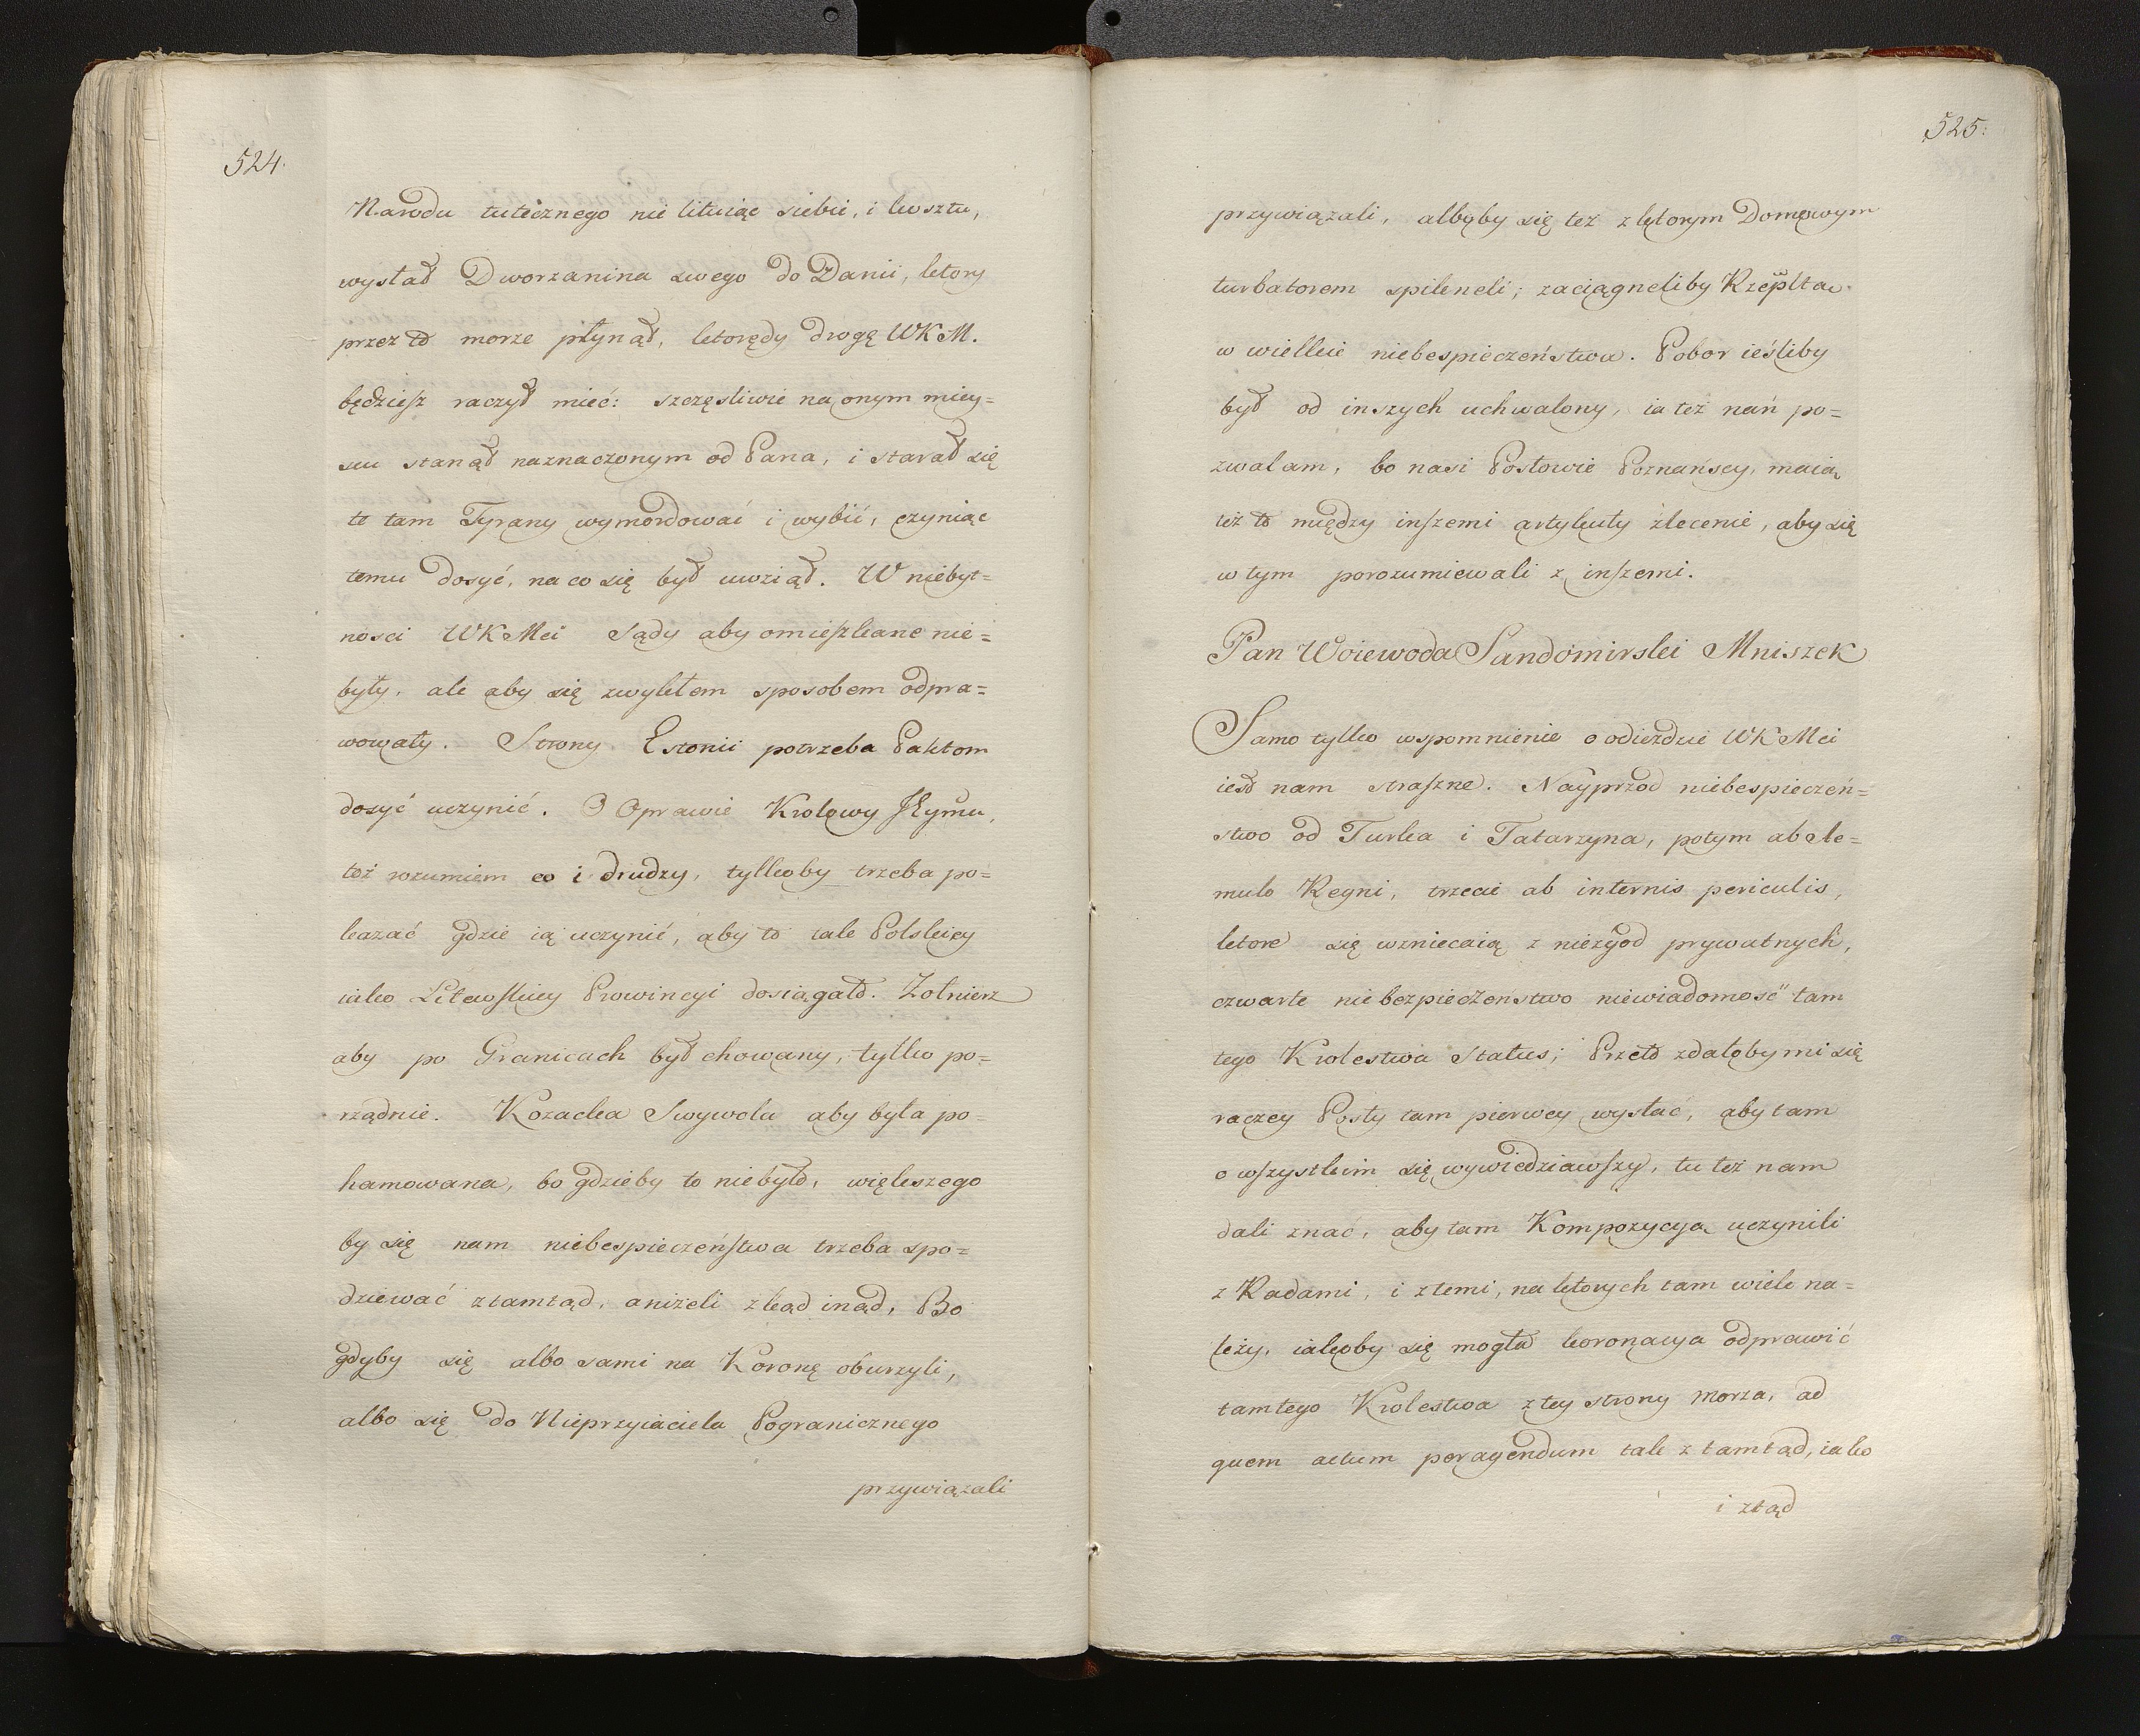 524.
Narodu tutecznego nie lituiąc siebie, i kosztu,
wysłał Dworzanina swego do Danii, ktory
przez to morze płynął, ktorędy drogę WKM.
będziesz raczył mieć: szczęsliwie na onym miey=
scu stanął naznaczonym od Pana, i starał się
te tam Tyrany wymordować i wybić, czyniąc
temu dosyć, na co się był uwziął. W niebyt=
nosci WKMci Sądy aby omieszkane nie=
były, ale aby się zwykłem sposobem odpra=
wowały. Strony Estonii potrzeba Paktom
dosyć uczynić. O Oprawie Krolowy Jeymu,
toż rozumiem co i drudzy, tylkoby trzeba po=
kazać gdzie ią uczynić, aby to tak Polskiey
iako Litewskiey Prowincyi dosiągało. Zołnierz
aby po Granicach był chowany, tylko po=
rządnie. Kozacka Swywola aby była po=
hamowana, bo gdzieby to niebyło, większego
by się nam niebespieczeństwa trzeba spo=
dziewać ztamtąd, aniżeli zkąd inąd, Bo
gdyby się albo sami na Koronę oburzyli,
albo się do Nieprzyiaciela Pogranicznego
przywiązali
525.
przywiązali, alboby się też z ktorym Domowym
turbatorem spikneli; zaciągneliby Rzeplta
w wielkie niebespieczeństwa. Pobor ieśliby
był od inszych uchwalony, ia też nań po=
zwalam, bo nasi Posłowie Poznańscy, maią
też to między inszemi artykuły zlecenie, aby się
w tym porozumiewali z inszemi.
Pan Woiewoda Sandomirski Mniszek
Samo tylko wspomnienie o odieździe WKMci
iest nam straszne. Nayprzod niebespieczeń=
stwo od Turka i Tatarzyna, potym ab Ae=
mulo Regni, trzecie ab internis periculis,
ktore się wzniecaią z niezgod prywatnych,
czwarte niebezpieczeństwo niewiadomosć tam
tego Krolestwa Status; Przeto zdałoby mi się
raczey Posły tam pierwey wysłać, aby tam
o wszystkim się wywiedziawszy, tu też nam
dali znać, aby tam Kompozycya uczynili
z Radami, i z temi, na ktorych tam wiele na=
leży, iakoby się mogła koronacya odprawić
tamtego Krolestwa z tey strony morza, ad
quem actum peragendum tak ztamtąd, iako
i ztąd